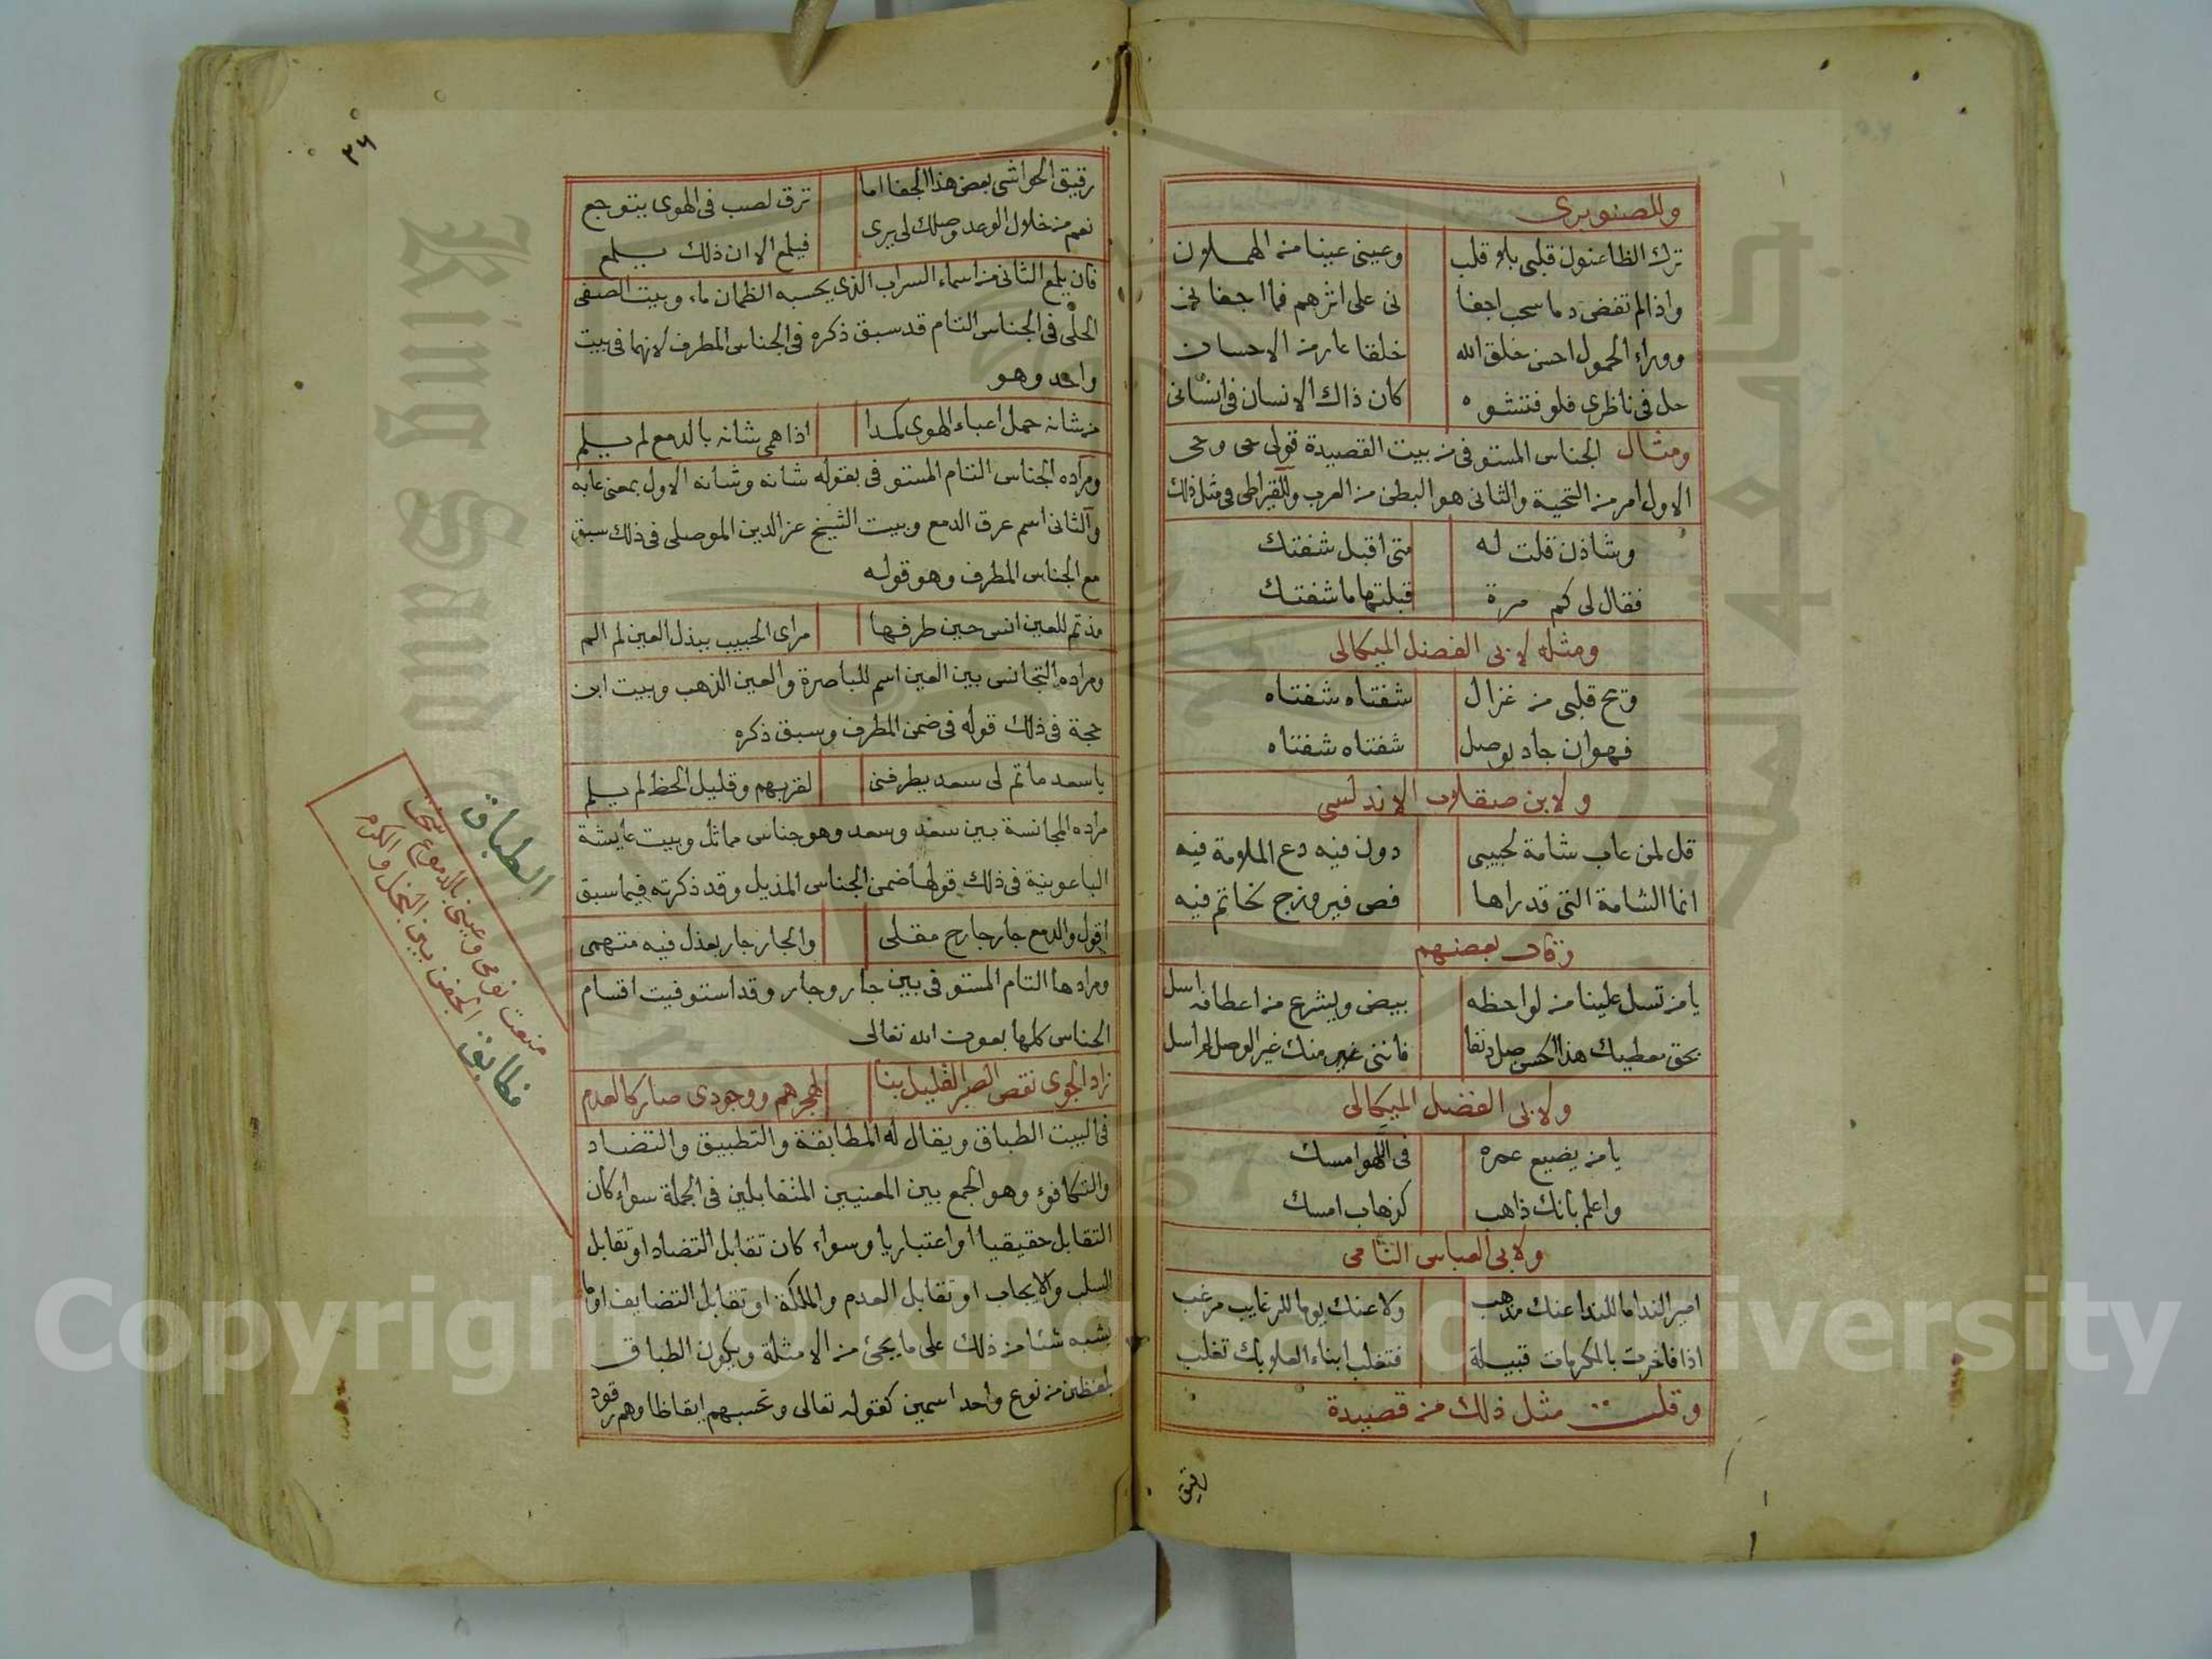 وللصنوبرى
ترك الظاعنون قلبى بلا قلب وعينى عينا من الهملان
واذا لم تفض دما سحب اجفا نى على اثرهم فما اجفانى
ووراء الحمول احسن خلق الله خلقا عار من الاحسان
حل فى ناظرى فلو فتشوه كان ذاك الانسان فى انسانى
ومثال الجناس المستوفى من بيت القصيدة قولى حى وحى
الاول امر من التحية والثانى هو البطن من العرب وللقيراطى فى مثل ذلك
وشاذن قلت له متى اقبل شفتك
فقال لى كم مرة قبلتها ما شفتك
ومثله لابى الفضل الميكالى
ويح قلبى من غزال شفتاه شفتاه
فهو ان جاد بوصل شفتاه شفتاه
ولابن صقلاب الاندلسى
قل لمن عاب شامة لحبيبى دون فيه دع الملامة فيه
انما الشامة التى قد راها فص فيروزج بخاتم فيه
وقال بعضهم
يا من تسل علينا من لواحظه بيض ويشرع من اعطافه اسل
بحق معطيك هذا الحسن صل دنفا فاننى غير منك غير الوصل لم اسل
ولابى الفضل الميكالى
يا من يضيع عمره فى اللهو امسك
واعلم بانك ذاهب كذهاب امسك
ولابى العباس النامى
امير الندا ما للندا عنك مذهب ولا عنك يوما للرغايب مرغب
اذا فاخرت بالمكرمات قبيلة فتغلب ابناء العلا بك تغلب
وقلت مثل ذلك من قصيدة
رقيق
٣٦
رقيق الحواشى بعض هذا الجفا اما ترق لصب فى الهوى يتوجع
نعم من خلال الوعد وصلك لى يرى فيلمع الا ان ذلك يلمع
فان يلمع الثانى من اسماء السراب الذى يحسبه الظمان ماء وبيت الصفى
الحلى فى الجناس التام قد سبق ذكره فى الجناس المطرف لانهما فى بيت
واحد وهو
من شانه حمل اعباء الهوى كمدا اذا همى شانه بالدمع لم يلم
ومراده الجناس التام المستوفى بقوله شانه وشانه الاول بمعنى عابه
والثانى اسم عرق الدمع وبيت الشيخ عز الدين الموصلى فى ذلك سبق
مع الجناس المطرف وهو قوله
مذ تم للعين انس حين طرفها مراى الحبيب ببذل العين لم الم
ومراده التجانس بين العين اسم للباصرة والعين الذهب وبيت ابن
حجة فى ذلك قوله فى ضمن المطرف وسبق ذكره
يا سعد ما تم لى سعد يطرفنى لقربهم وقليل الحظ لم يلم
مراده المجانسة بين سعد وسعد وهو جناس مماثل وبيت عايشة
الباعونية فى ذلك قولها ضمن الجناس المذيل وقد ذكرته فيما سبق
اقول والدمع جار جارح مقلى والجار جار بعذل فيه متهمى
ومرادها التام المستوفى بين جار وجار وقد استوفيت اقسام
الجناس كلها بعون الله تعالى
زاد الجوى نقص الصبر القليل بنا لهجرهم ووجودى صار كالعدم
فى البيت الطباق ويقال له المطابقة والتطبيق والتضاد
والتكافوء وهو الجمع بين المعنيين المتقابلين فى الجملة سواء كان
التقابل حقيقيا او اعتباريا وسواء كان تقابل التضاد او تقابل
السلب والايجاب او تقابل العدم والملكة او تقابل التضايف او ما
يشبه شئا من ذلك على ما يجئ من الامثلة ويكون الطباق
بلفظين من نوع واحد اسمين كقوله تعالى وتحسبهم ايقاظا وهم رقود
الطباق
منعت نومى وعينى بالدموع سخت
فطابق الجفن بين البخل والكرم
Copyright © King Saud University
King Saud University
جامعة الملك سعود
1957